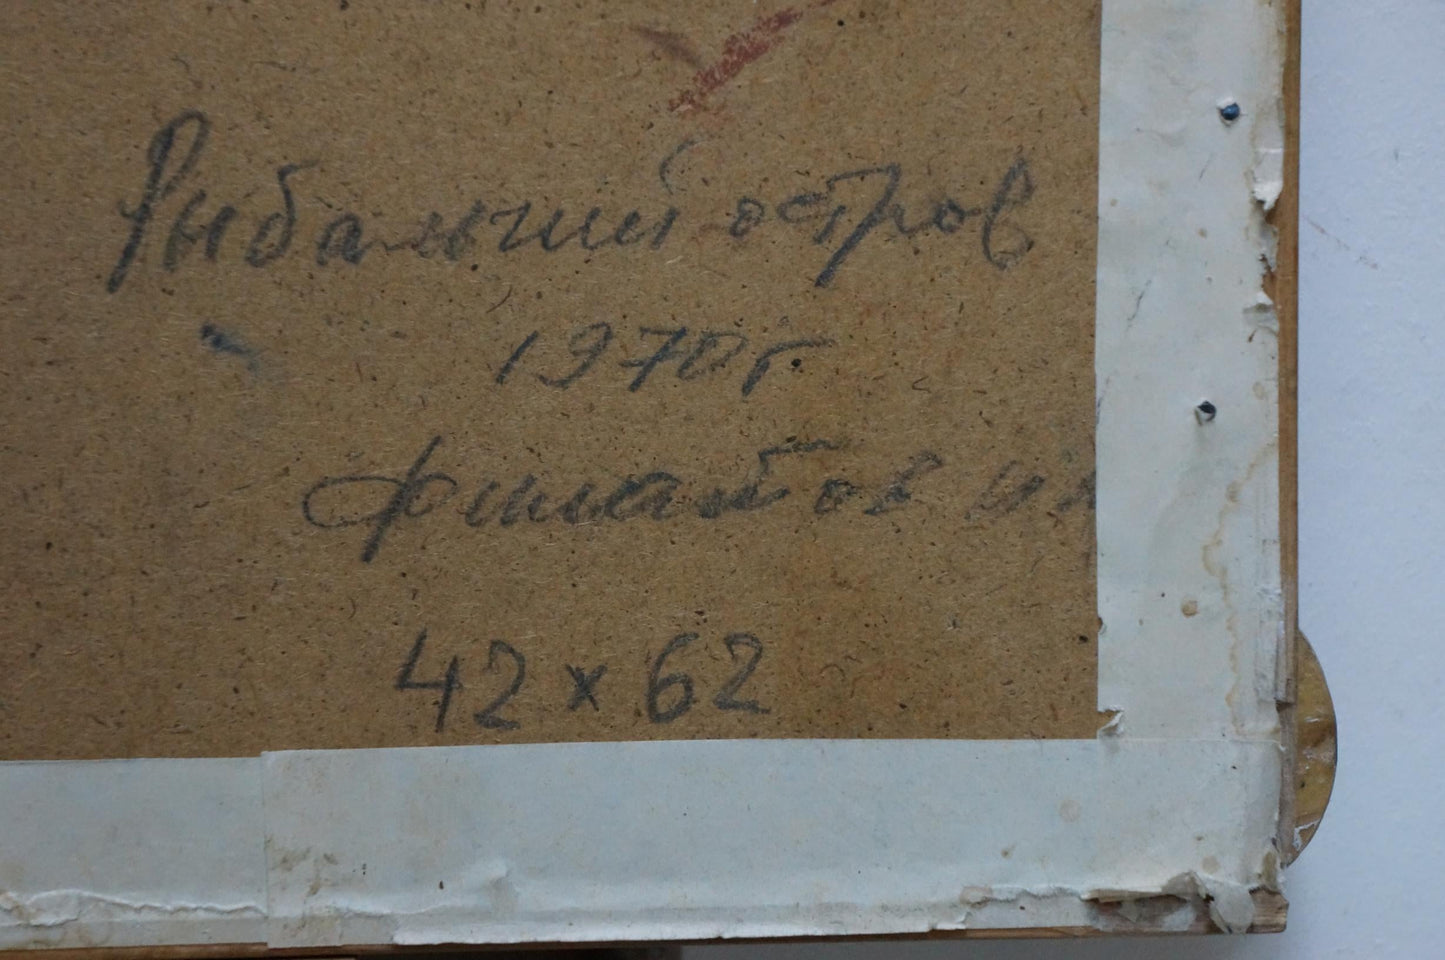 Рыбальчий остров
1970 г
Филатов
42 x 62